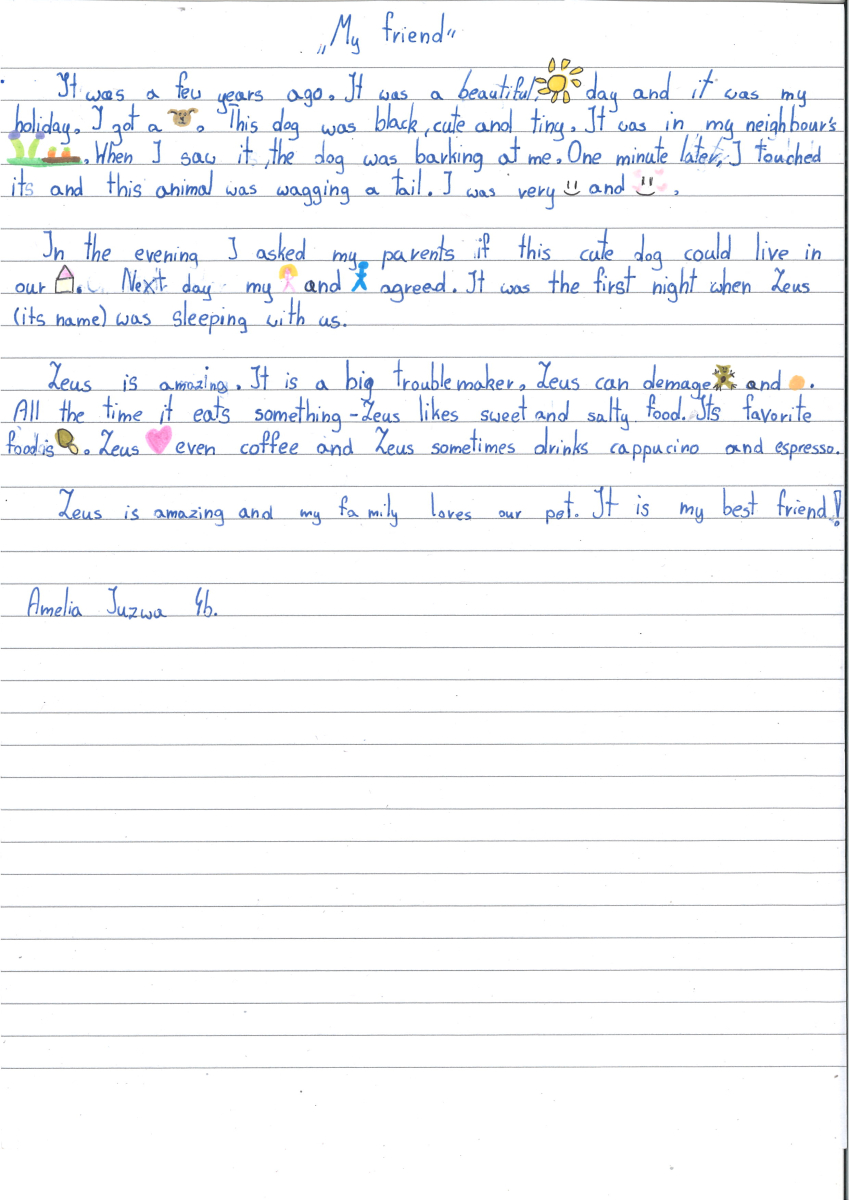 „My friend“
It was a few years ago. It was a beautiful, day and it was my
holiday. I got a . This dog was black, cute and tiny. It was in my neighbour's
. When I saw it, the dog was barking at me. One minute later, I touched
its and this animal was wagging a tail. I was very and .
In the evening I asked my parents if this cute dog could live in
our . Next day my and agreed. It was the first night when Zeus
(its name) was sleeping with us.
Zeus is amazing. It is a big troublemaker, Zeus can demage and .
All the time it eats something - Zeus likes sweet and salty food. Its favorite
food is . Zeus even coffee and Zeus sometimes drinks cappucino and espresso.
Zeus is amazing and my family loves our pet. It is my best friend!
Amelia Juzwa 4b.